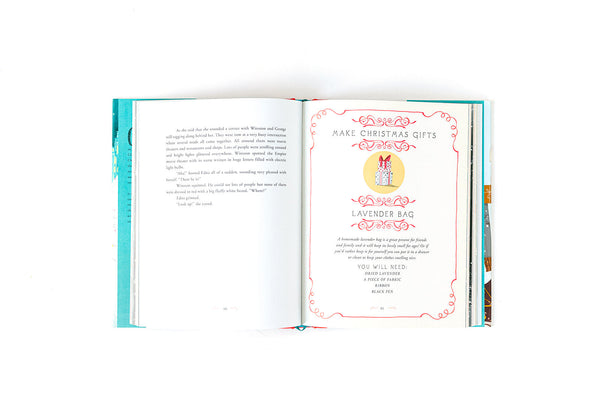 As she said that she rounded a corner with Winston and George
still tagging along behind her. They were now in a very busy intersection
where several roads all came together. All around them were more
theatres and restaurants and shops. Lots of people were strolling around
and bright lights glittered everywhere. Winston spotted the Empire
movie theatre with its name written in huge letters filled with electric
light bulbs.
"Aha!" hooted Edna all of a sudden, sounding very pleased with
herself. "There he is!"
Winston squinted. He could see lots of people but none of them
were dressed in red with a big fluffy white beard. "Where?"
Edna grinned.
"Look up!" she cooed.
MAKE CHRISTMAS GIFTS
LAVENDER BAG
A homemade lavender bag is a great present for friends
and family and it will keep on lovely smell for ages! Or if
you'd rather keep it for yourself you can put it in a drawer
or closet to keep your clothes smelling nice.
YOU WILL NEED:
DRIED LAVENDER
A PIECE OF FABRIC
RIBBON
BLACK PEN